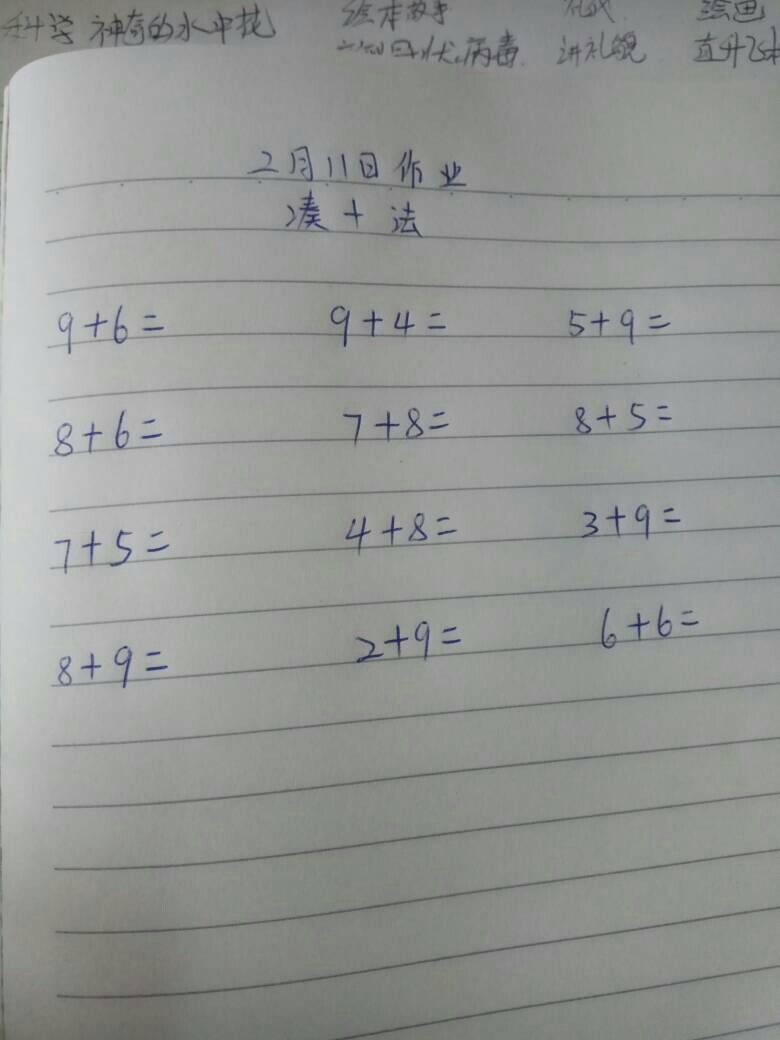 科学 神奇的水中花 绘本故事 礼仪 绘画
冠状病毒 讲礼貌 直升飞机
2月11日作业
凑十法
9+6= 9+4= 5+9=
8+6= 7+8= 8+5=
7+5= 4+8= 3+9=
8+9= 2+9= 6+6=